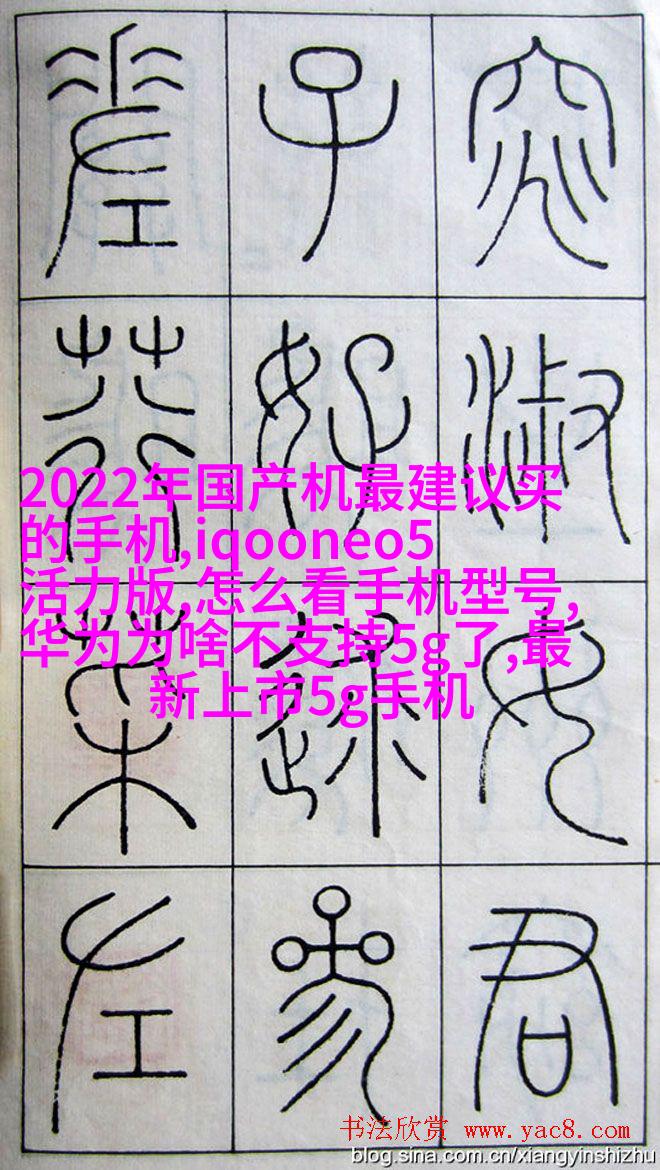 窕淑女君
子好逑參
差荇菜左
2022年国产机最建议买
的手机,iqooneo5
活力版,怎么看手机型号,
华为为啥不支持5g了,最
新上市5g手机
书法欣赏 www.yac8.com
blog.sina.com.cn/xiangyinshizhu